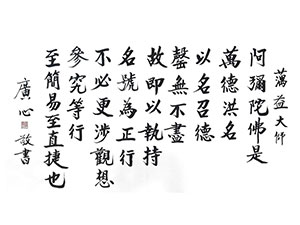 蕅益大師
阿彌陀佛是
萬德洪名
以名召德
罄無不盡
故即以執持
名號為正行
不必更涉觀想
參究等行
至簡易至直捷也
廣心敬書